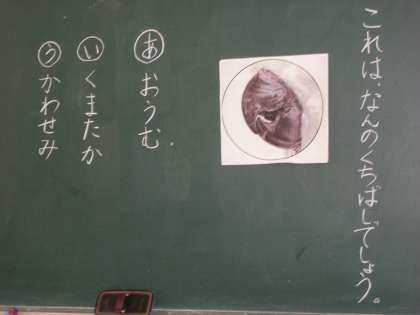 これは、なんのくちばしでしょう。
あ おうむ、
い くまたか
う かわせみ